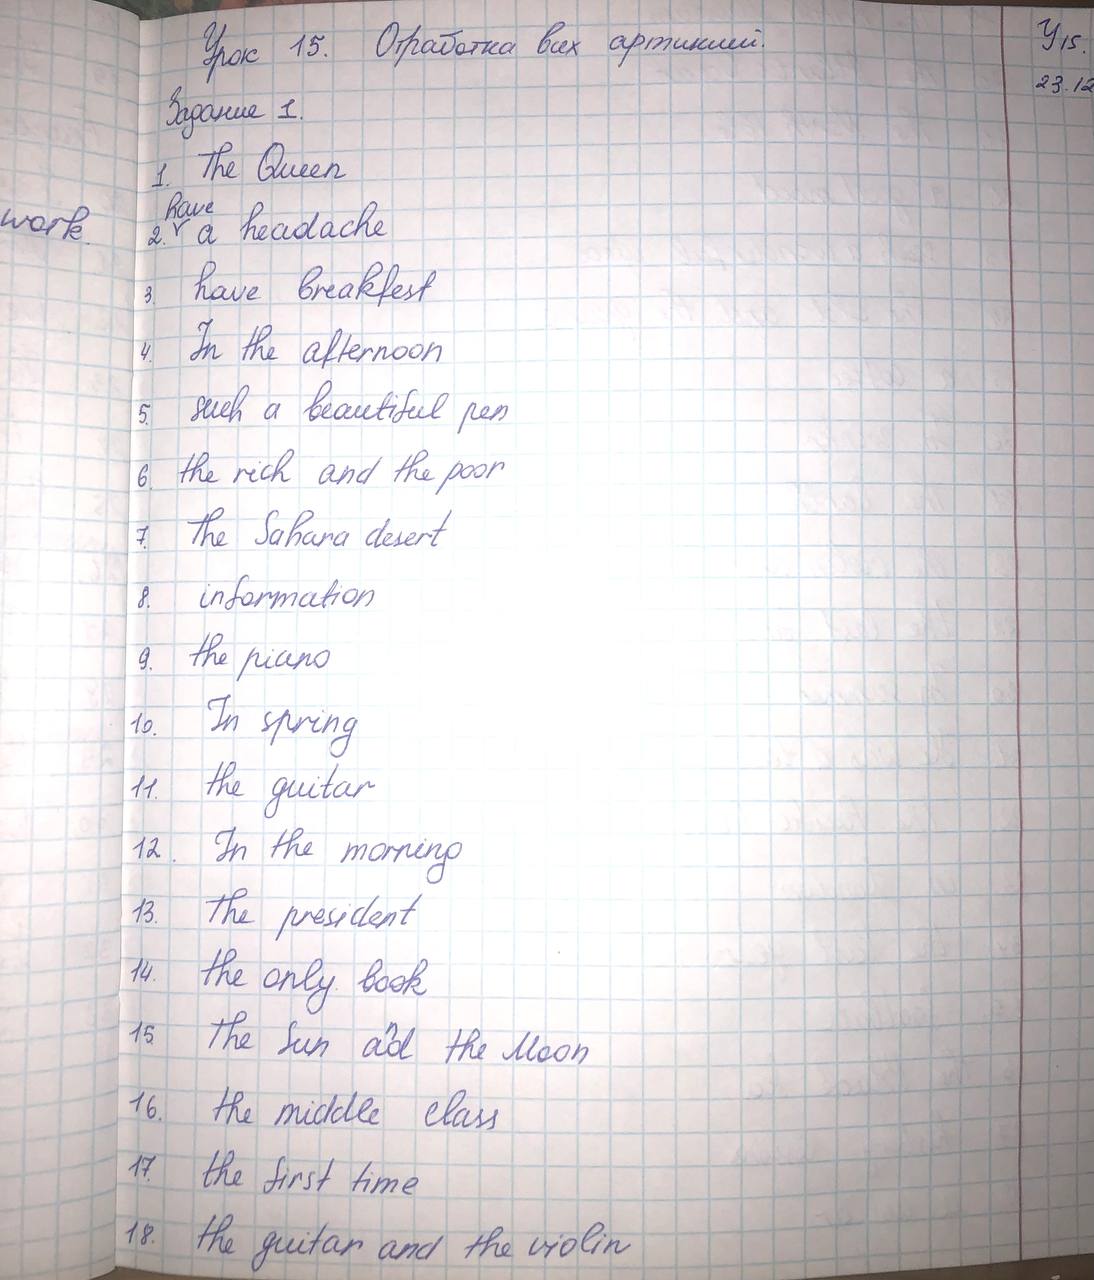 Урок 15. Отработка всех артиклей.
У15.
23.12
Задание 1.
1. The Queen
work.
have
2. a headache
3. have breakfest
4. In the afternoon
5. such a beautiful pen
6. the rich and the poor
7. The Sahara desert
8. information
9. the piano
10. In spring
11. the guitar
12. In the morning
13. The president
14. the only book
15. The Sun and the Moon
16. the middle class
17. the first time
18. the guitar and the violin